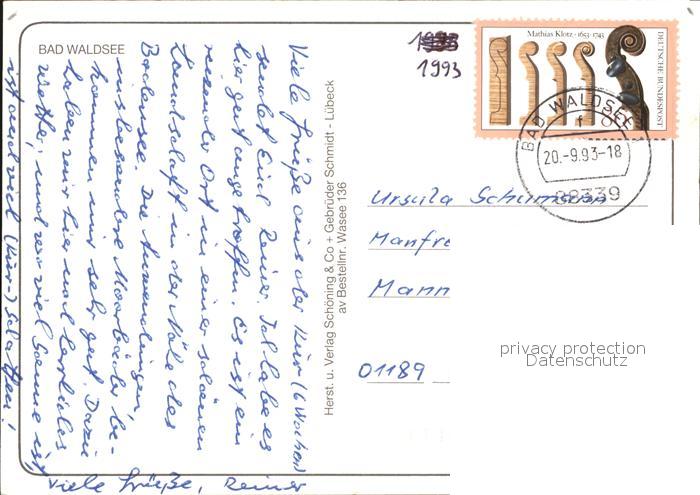 BAD WALDSEE
Viele Grüße aus der Kur (6 Wochen)
sendet Euch Reiner. Ich habe es
hier gut angetroffen. Es ist ein
reizender Ort in einer schönen
Landschaft in der Nähe des
Bodensee. Die Anwendungen,
insbesondere Moorbäder be-
kommen mir sehr gut. Dazu
haben wir hier noch herrliches
Wetter, und wo viel Sonne ist,
ist auch viel (Kur-) Schatten!
Viele Grüße, Reiner
Herst. u. Verlag Schöning & Co + Gebrüder Schmidt - Lübeck
av Bestellnr. Wasee 136
1993
Mathias Klotz · 1653-1743
DEUTSCHE BUNDESPOST
BAD WALDSEE
f
20.-9.93-18
88339
Ursula Schumann
Manfre
Mann
01189
privacy protection
Datenschutz